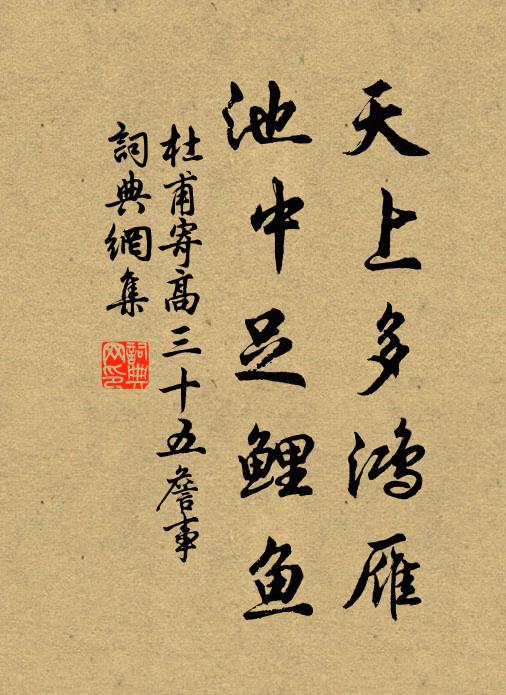 天上多鸿雁
池中足鲤鱼
杜甫寄高三十五詹事
詞典網集
詞典网印